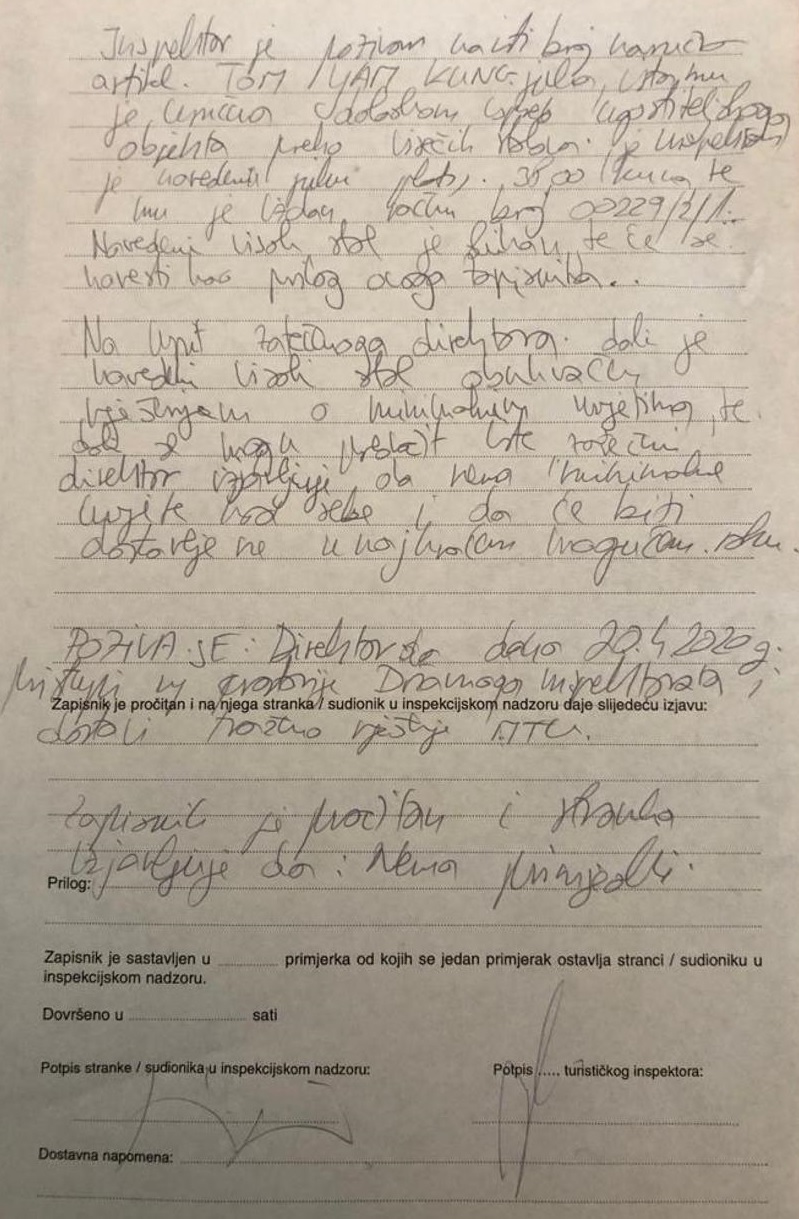 Inspektor je pozivom na isti broj naručio
artikl. TOM YAM KUNG jela, isto mu
je uručeno ispred ugostiteljskog
objekta preko visećih stola. je inspektor
je navedeni platio. 35,00 kuna te
mu je izdan račun broj 00229/2/1.
Navedeni visoki stol je te će se
navesti kao prilog ovoga zapisnika..
Na upit zatečenoga direktora. dali je
navedeni visoki stol obuhvaćen
rješenjem o minimalnim uvjetima, te
dali se mogu iste zatečeni
direktor izjavljuje, da nema minimalne
uvjete kod sebe i da će biti
dostavljene u najkraćem mogućem roku.
POZIVA SE: Direktor da dana 20.4 2020 g.
pristupi u prostorije Državnoga Inspektorata i
Zapisnik je pročitan i na njega stranka / sudionik u inspekcijskom nadzoru daje slijedeću izjavu:
dostavi rješenje MTU.
Zapisnik je pročitan i stranka
izjavljuje da: Nema primjedbi.
Prilog:
Zapisnik je sastavljen u ............. primjerka od kojih se jedan primjerak ostavlja stranci / sudioniku u
inspekcijskom nadzoru.
Dovršeno u .......................... sati
Potpis stranke / sudionika u inspekcijskom nadzoru: Potpis ..... turističkog inspektora:
Dostavna napomena: